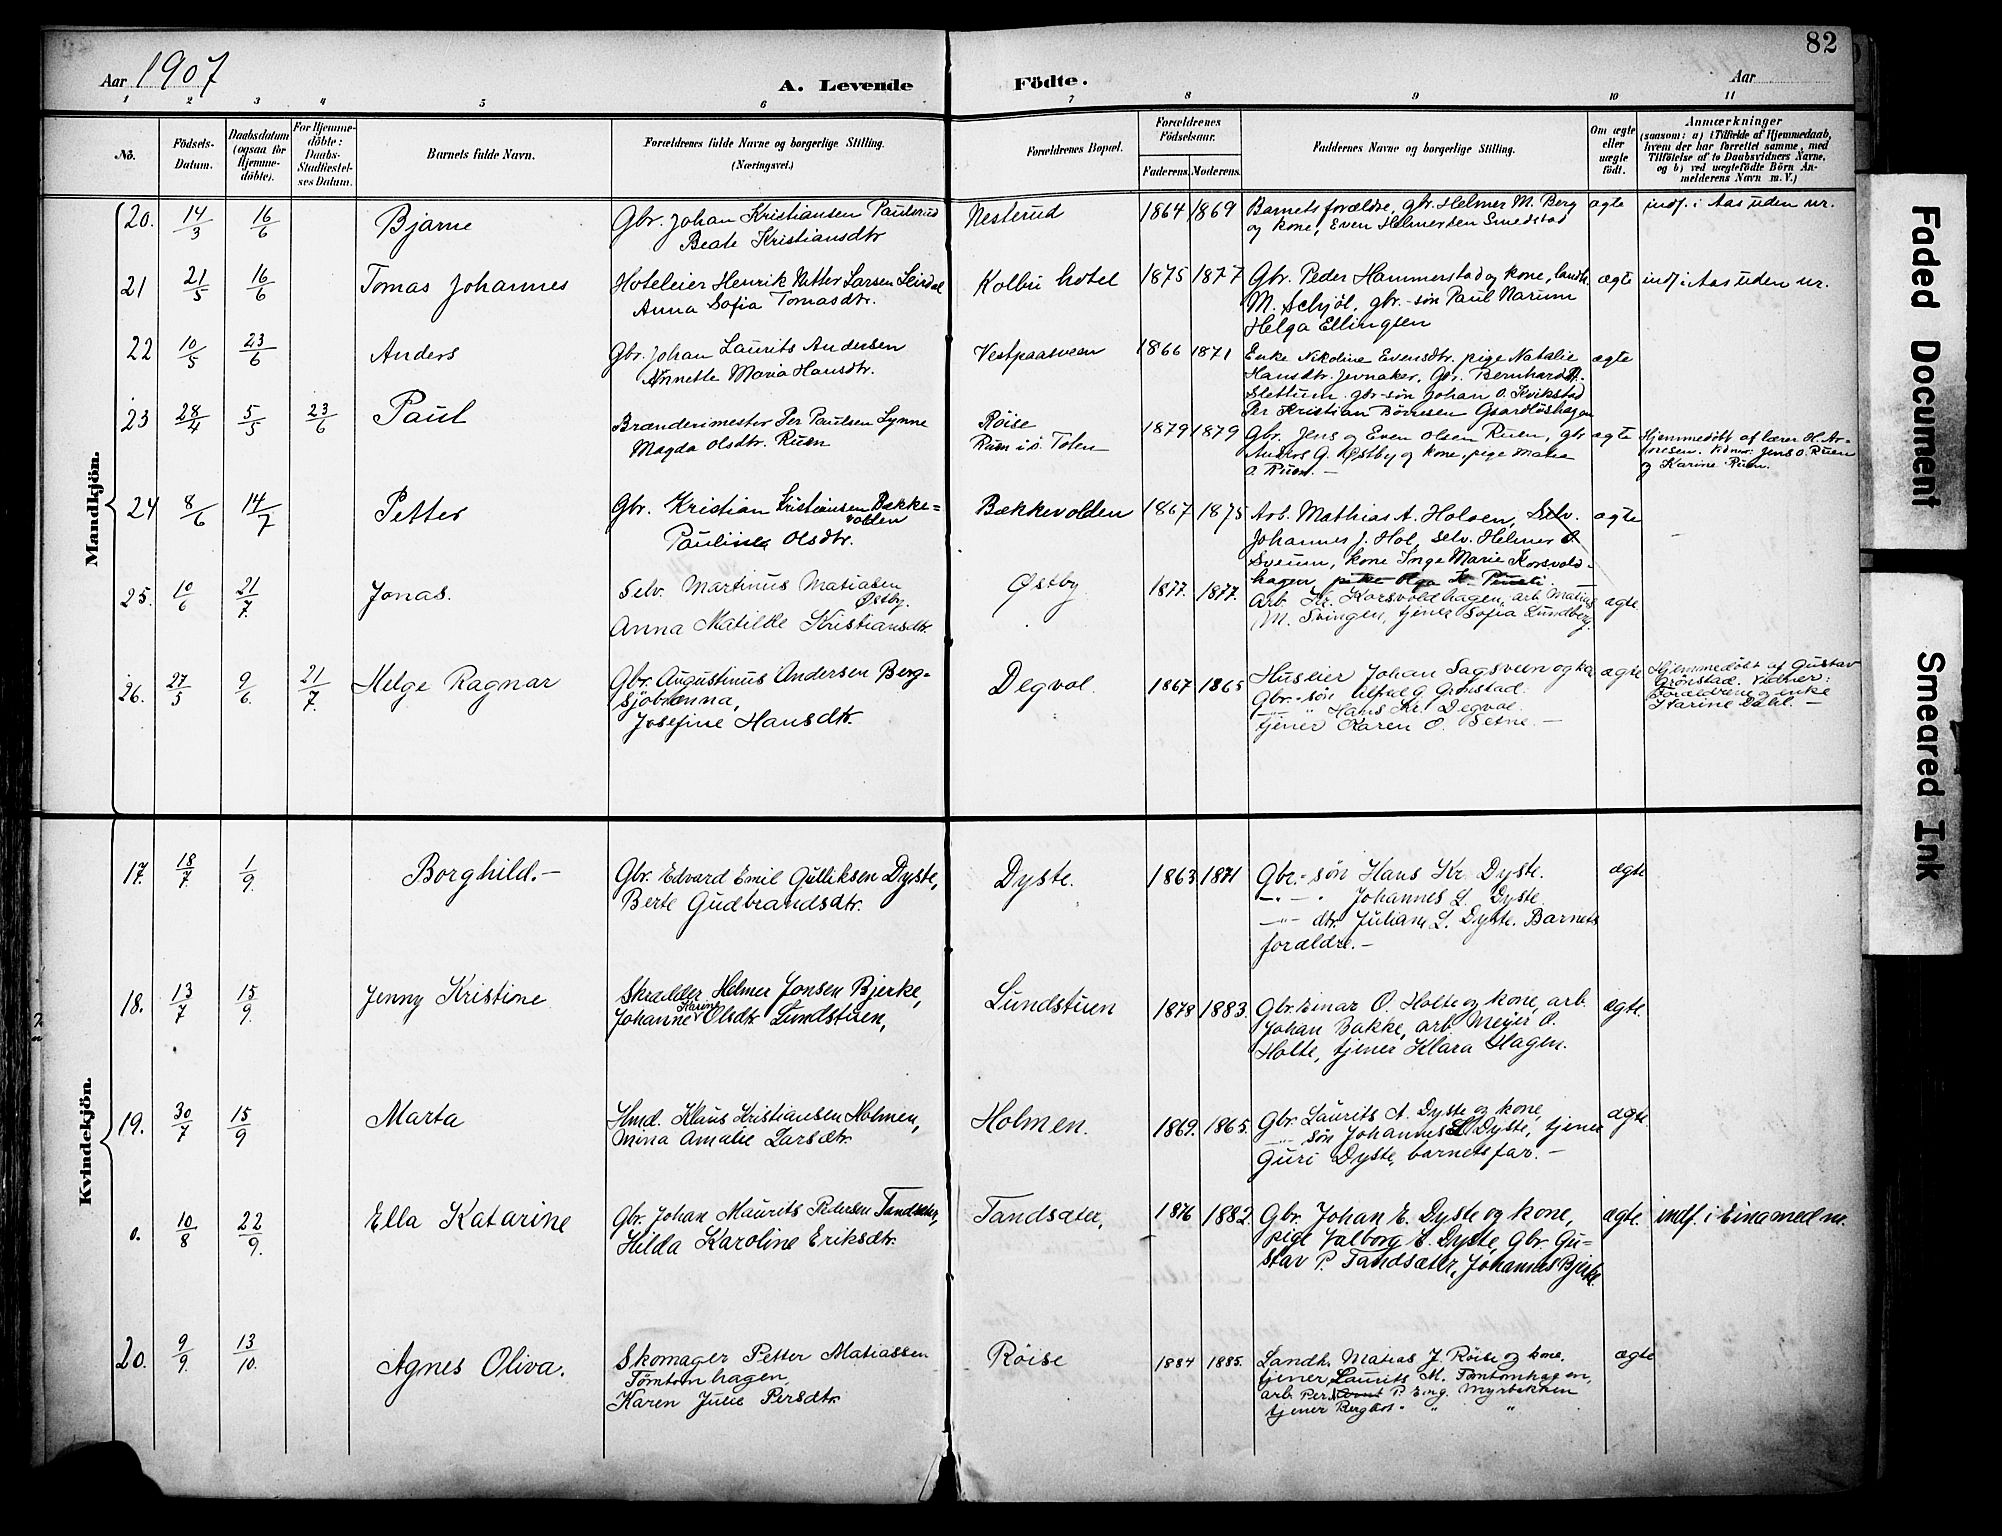 82
Aar 1907
A. Levende Fødte.
Aar
1 2 3 4 5 6 7 8 9 10 11
No.
Fødsels-Datum.
Daabsdatum (ogsaa for Hjemmedøbte).
For Hjemmedøbte: Daabs-Stadfæstelses Datum.
Barnets fulde Navn.
Forældrenes fulde Navne og borgerlige Stilling. (Næringsvei.)
Forældrenes Bopæl.
Forældrenes Fødselsaar.
Faderens. Moderens.
Faddernes Navne og borgerlige Stilling.
Om ægte eller uægte født.
Anmærkninger
(saasom: a) i Tilfælde af Hjemmedaab, hvem der har forrettet samme, med Tilføielse af to Daabsvidners Navne, og b) ved uægtefødte Børn Anmelderens Navn m. V.)
Mandkjön.
20. 14/3 16/6 Bjarne
Gbr. Johan Kristiansen Paulsrud
Beate Kristiansdtr
Nesterud 1864 1869
Barnets forældre, gbr. Helmer M. Berg
og kone, Even Helmersen Smedstad
ægte indf. i Aas uden nr.
21 21/5 16/6 Tomas Johannes
Hoteleier Henrik Petter Larsen
Anna Sofia Tomasdtr.
Kolbu hotel 1875 1877
Gbr. Peder Hammerstad og kone, landh.
M. Schjøl, gbr.-søn Paul Narum
Helga Ellingsen
ægte indf. i Aas uden nr.
22 10/5 23/6 Anders
Gbr. Johan Laurits Andersen
Annette Maria Hansdtr.
Vestpaasveen 1866 1871
Enke Nikoline Evensdtr. pige Natalie
Hansdtr. Jevnaker, Gbr. Bernhard A.
Slettum. gbr-søn Johan O. Kvikstad
Per Kristian Børresen
ægte
23 28/4 5/5 23/6 Paul
Brænderimester Per Paulsen Lynne
Magda Olsdtr. Ruen
Røise
Ruen i ø. Toten
1879 1879
Gbr. Jens og Even Olsen Ruen, gbr
Anders G. Østby og kone, pige Matea
O Ruen. —
ægte
Hjemmedøbt af lærer H. Ar-
nesen. Vidner: Jens O. Ruen
og Karine Ruen.
24 8/6 14/7 Petter
Gbr. Kristian Kristiansen Bække=
volden
Pauline Olsdtr.
Bækkevolden 1867 1875
Arb. Mathias A. Holsen, Selv.
Johannes J. Hol, selv. Helmer O
Sveum, kone Inge Marie Korsvold-
hagen,
ægte
25. 10/6 21/7. Jonas.
Selv. Martinus Matiasen
Østby.
Anna Matilde Kristiansdtr.
Østby 1877. 1877.
Arb Kr. Korsvoldhagen, arb Matias
M. Svingen, tjener Sofia Lundberg.
ægte
26. 27/5 9/6 21/7. Helge Ragnar
Gbr. Augustinus Andersen Berg-
Sjøbrænna,
Josefine Hansdtr.
Degvol. 1867 1865
Huseier Johan Sagsveen og ka
Gbr-søn Alfred G. Grønstad.
" Hans Kr. Degvol.
tjener Karen O. Setne. —
ægte
Hjemmedøbt af Gustav
Grønstad. Vidner:
Forældrene og enke
Karine Dahl. —
Kvindekjön.
17. 18/7 1/9. Borghild. —
Gbr. Edvard Emil Gulliksen Dyste,
Berte Gudbrandsdtr.
Dyste. 1863 1871
Gbr.-søn Hans Kr. Dyste.
—"— " Johannes L. Dyste
—"— dtr. Juliane L. Dyste. Barnets
forældre. —
ægte
18. 13/7 15/9. Jenny Kristine
Skrædder Helmer Jonsen Bjerke,
Karine
Johanne Olsdtr Lundstuen,
Lundstuen 1878 1883.
Gbr. Einar O. Holte og kone, arb.
Johan Bakke, arb. Meyer O.
Holte, tjener Klara Hagen.
ægte.
19. 30/7 15/9 Marta
Hmd. Klaus Kristiansen Holmen,
Mina Amalie Larsdtr.
Holmen. 1869. 1865.
Gbr. Laurits A. Dyste og kone,
" søn Johannes L Dyste, tjener
Guri Dyste, barnets far. —
ægte
0. 10/8 22/9. Ella Katarine
Gbr. Johan Maurits Pedersen Tandsæter,
Hilda Karoline Eriksdtr.
Tandsæter, 1876 1882.
Gbr. Johan E. Dyste og kone,
pige Valborg E. Dyste, Gbr. Gu=
stav P. Tandsæter, Johannes Bjerke.
ægte. indf. i Eina med nr.
20. 9/9. 13/10. Agnes Oliva.
Skomager Petter Matiassen
Tømtomhagen,
Karen Julie Persdtr.
Røise 1884 1885.
Landh. Matias J. Røise og kone,
tjener Laurits M. Tømtomhagen,
arb. Per P. Eng. Myrbakken
tjener Bergtot " " "
ægte
Faded Document
Smeared Ink